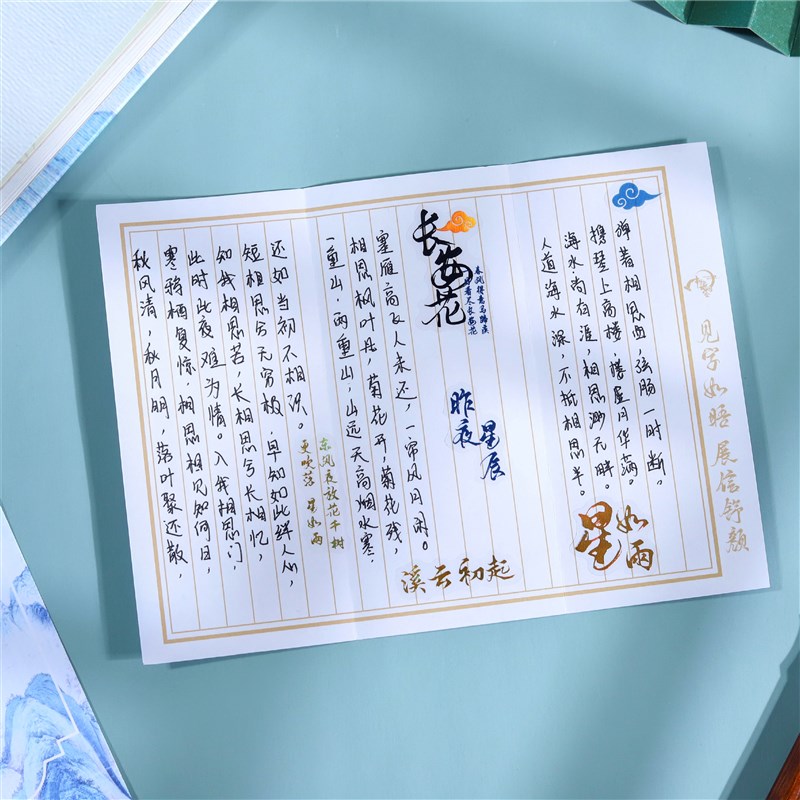 秋风清，秋月明，落叶聚还散，
寒鸦栖复惊，相思相见知何日，
此时此夜难为情。入我相思门，
知我相思苦，长相思兮长相忆，
短相思兮无穷极，早知如此绊人心，
还如当初不相识。
东风夜放花千树
更吹落 星如雨
一重山，两重山，山远天高烟水寒，
相思枫叶丹，菊花开，菊花残，
塞雁高飞人未还，一帘风月闲。
长安花
春风得意马蹄疾
一日看尽长安花
昨夜
星辰
溪云初起
人道海水深，不抵相思半。
海水尚有涯，相思渺无畔。
携琴上高楼，楼虚月华满。
弹着相思曲，弦肠一时断，
星如雨
见字如晤 展信舒颜